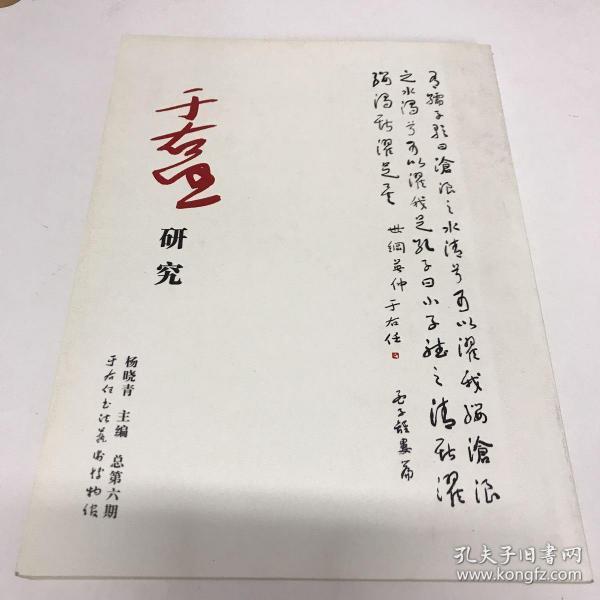 有孺子歌曰滄浪之水清兮可以濯我纓滄浪
之水濁兮可以濯我足孔子曰小子聽之清斯濯
纓濁斯濯足矣 世綱英仲 于右任
孟子離婁篇
于右任
研究
杨晓青 主编 总第六期
于右任书法艺术博物馆
孔夫子旧书网
www.kongfz.com